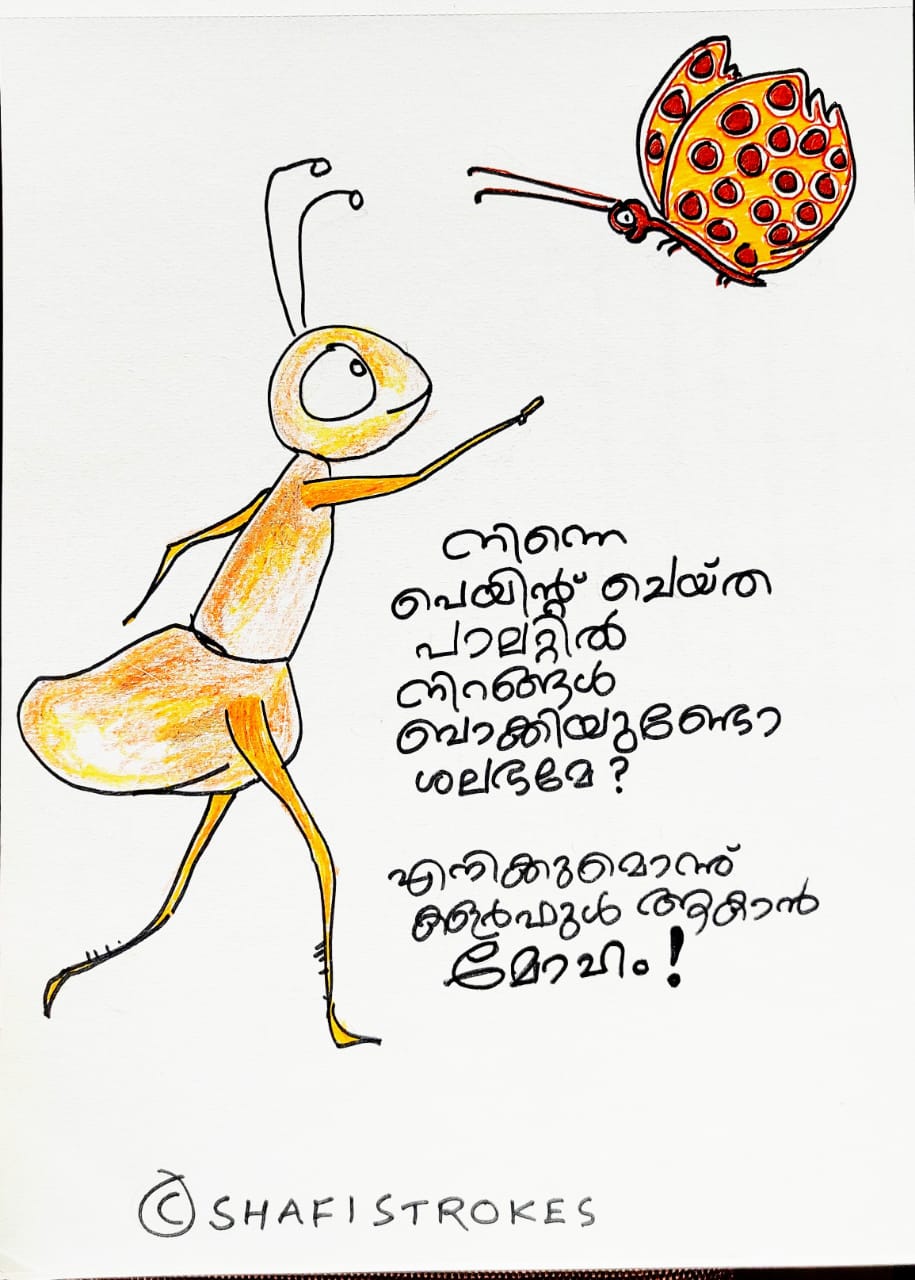 നിന്നെ
പെയിന്റ് ചെയ്ത
പാലറ്റിൽ
നിറങ്ങൾ
ബാക്കിയുണ്ടോ
ശലഭമേ?
എനിക്കുമൊന്ന്
കളർഫുൾ ആകാൻ
മോഹം!
© SHAFISTROKES